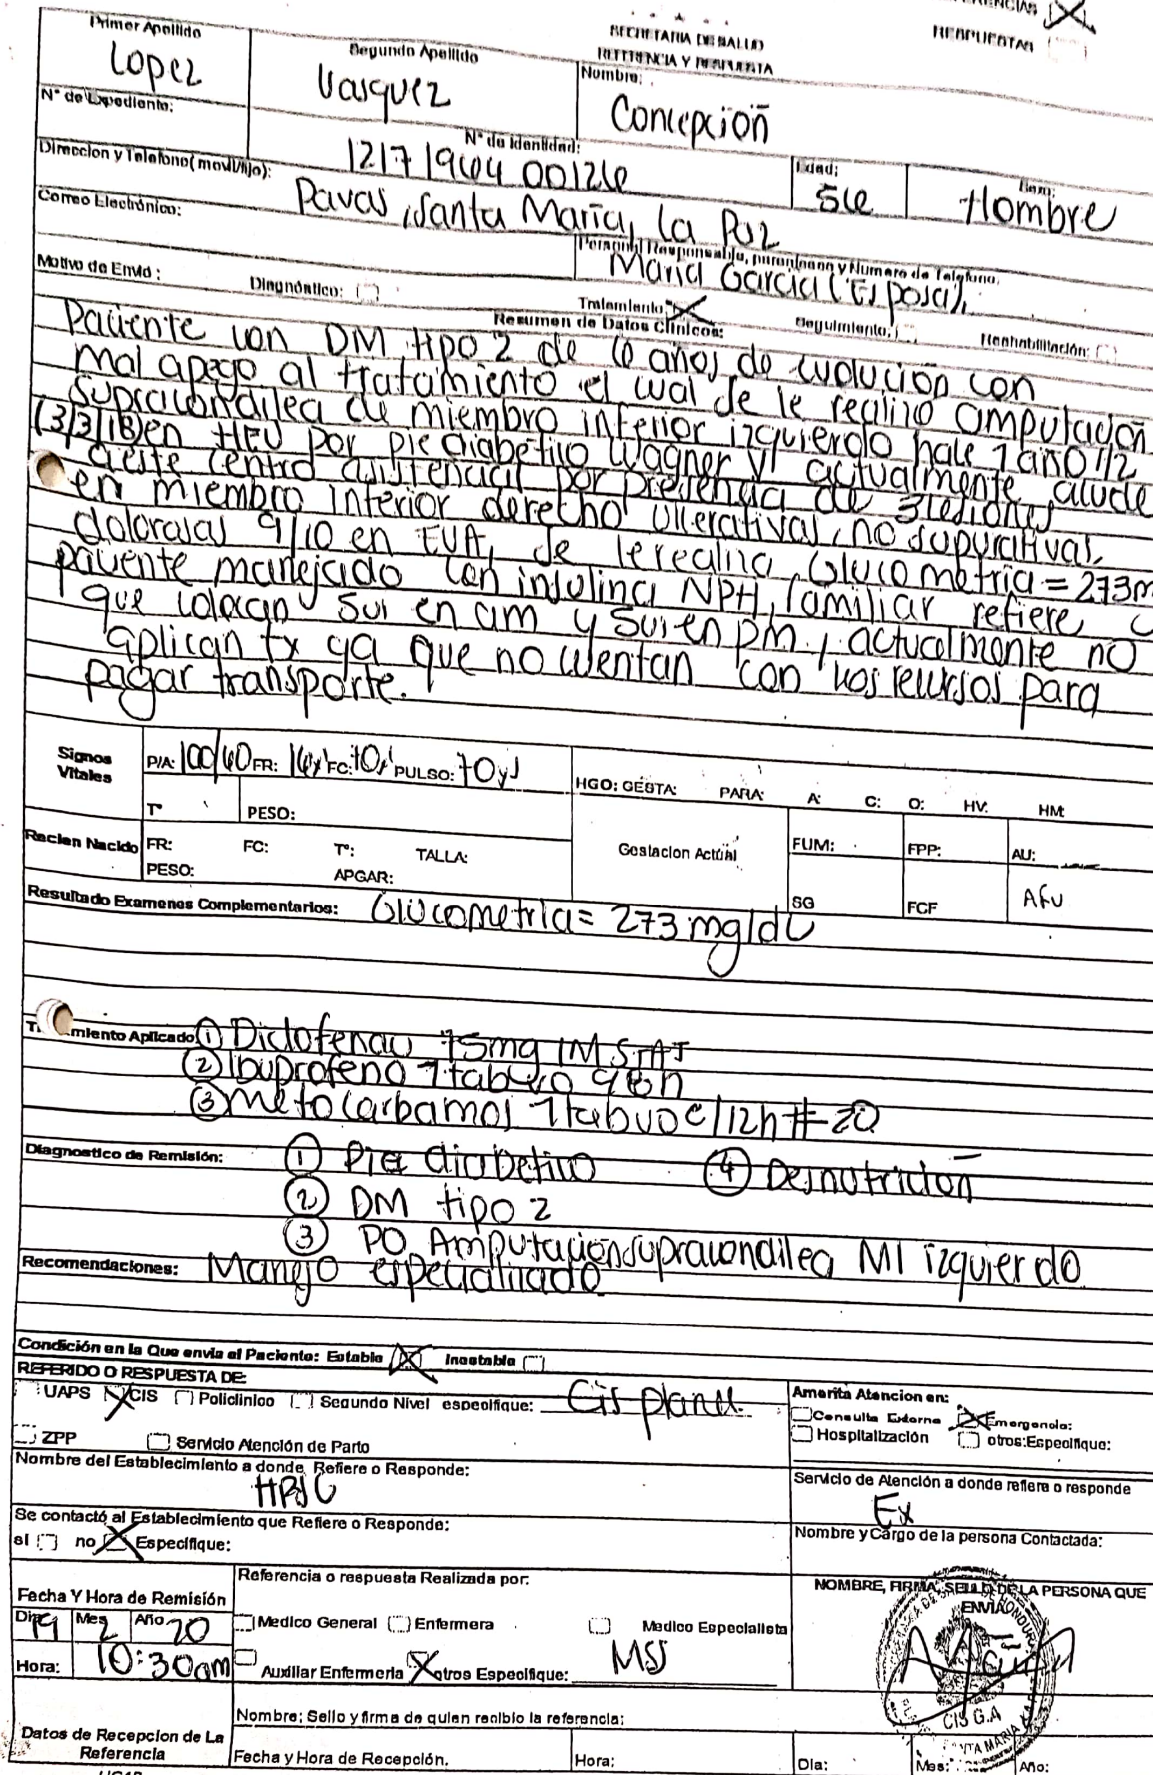 SECRETARIA DE SALUD
REFERENCIA Y RESPUESTA
RESPUESTAS
Primer Apellido
Segundo Apellido
Nombre:
Lopez
Vasquez
Concepción
N° de Expediente:
N° de Identidad:
Direccion y Telefono( movil/fijo):
Edad:
Sexo:
Hombre
Pavas, Santa María, La Paz
Correo Electrónico:
Persona Responsable, parentesco y Numero de Telefono:
María García (Esposa),
Motivo de Envío :
Diagnóstico:
Tratamiento:
Seguimiento:
Reehabilitación:
Resumen de Datos Clínicos:
Paciente con DM tipo 2 de 10 años de evolucion con
mal apego al tratamiento el cual de le realizo amputación
supracondilea de miembro inferior izquierdo hace 1 año 1/2
(3/3/18) en HEU por pie diabetico Wagner V, actualmente acude
a este centro asistencial por presencia de 3 lesiones
en miembro inferior derecho ulcerativas, no supurativas,
dolorosas 9/10 en EVA, se le realiza Glucometria = 273m
paciente manejado con insulina NPH, familiar refiere
que colocan 5ui en am y 5ui en pm, actualmente no
aplican tx ya que no cuentan con los recursos para
pagar transporte.
Signos
Vitales
P/A: 100/60 FR: 16x' FC: 70x' PULSO: 70x'
HGO: GESTA: PARA: A: C: O: HV: HM:
T° PESO:
Recien Nacido
FR: FC: T°: TALLA:
PESO: APGAR:
Gestacion Actual
FUM: FPP: AU:
SG FCF AFU
Resultado Examenes Complementarios: Glucometria= 273 mg/dL
miento Aplicado: ① Diclofenac 75mg IM STAT
② Ibuprofeno 1 tab V.O c/8h
③ Metocarbamol 1 tab VO c/12h #20
Diagnostico de Remisión: ① Pie diabetico ④ Desnutrición
② DM tipo 2
③ PO Amputación supracondilea MI izquierdo
Recomendaciones: Manejo especializado
Condición en la Que envia al Paciente: Estable Inestable
REFERIDO O RESPUESTA DE:
UAPS CIS Policlinico Segundo Nivel especifique:
ZPP Servicio Atención de Parto
Amerita Atencion en:
Consulta Externa Emergencia:
Hospitalización otros:Especifique:
Nombre del Establecimiento a donde Refiere o Responde:
Servicio de Atención a donde refiere o responde
Ex
Se contactó al Establecimiento que Refiere o Responde:
si no Especifique:
Nombre y Cargo de la persona Contactada:
Fecha Y Hora de Remisión
Referencia o respuesta Realizada por:
NOMBRE, FIRMA, SELLO DE LA PERSONA QUE
ENVIA
Dia 19 Mes 2 Año 20
Medico General Enfermera Medico Especialista
Hora: 10:30am
Auxiliar Enfermeria otros Especifique: MSS
CIS G.A
Datos de Recepcion de La
Referencia
Nombre; Sello y firma de quien recibio la referencia:
Fecha y Hora de Recepción. Hora: Dia: Mes: Año: